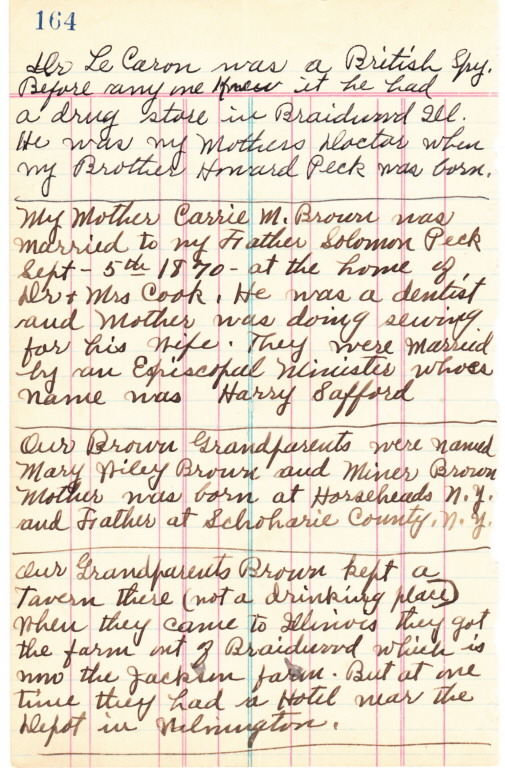 164
Dr Le Caron was a British Spy.
Before any one Knew it he had
a drug store in Braidwood Ill.
He was my Mothers Doctor when
my Brother Howard Peck was born.
My Mother Carrie M. Brown was
married to my Father Solomon Peck
Sept - 5th 1870 - at the home of
Dr + Mrs Cook. He was a dentist
and Mother was doing sewing
for his Wife. They were Married
by an Episcopal Minister whoes
name was Harry Safford
Our Brown Grandparents were named
Mary Wiley Brown and Miner Brown
Mother was born at Horseheads N.Y.
and Father at Schoharie County, N.Y.
Our Grandparents Brown kept a
Tavern there (not a drinking place)
When they came to Illinois they got
the farm out of Braidwood which is
now the Jackson farm. But at one
time they had a Hotel near the
Depot in Wilmington.